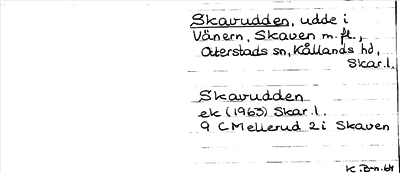 Skavudden, udde i
Vänern, Skaven m.fl.,
Otterstads sn, Kållands hd,
Skar.l.
Skavudden
ek (1963) Skar.l.
9 C Mellerud 2 i Skaven
K.B-n. 64